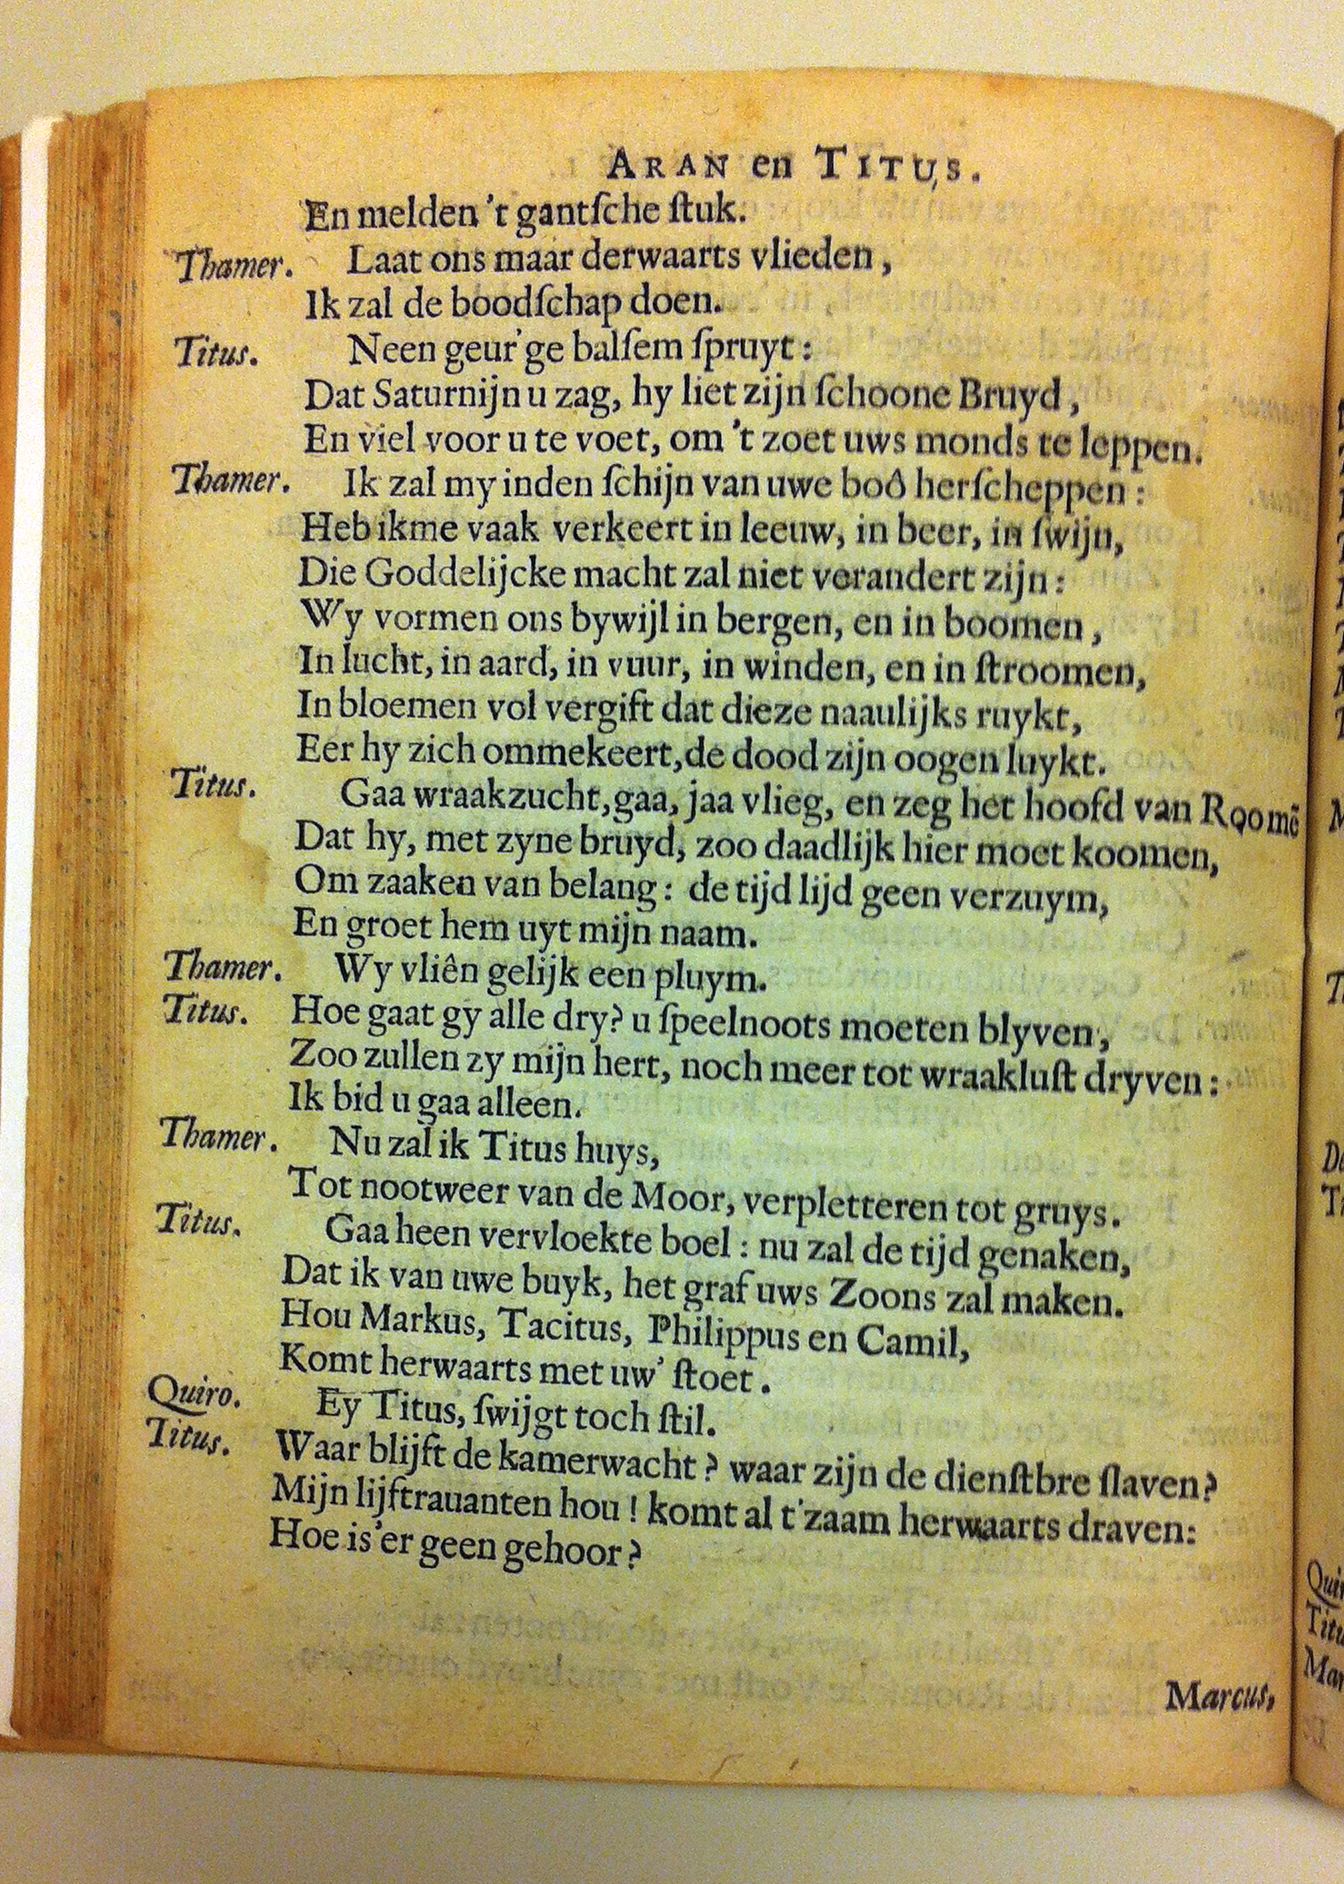 ARAN en TITUS.
En melden 't gantſche ſtuk.
Thamer. Laat ons maar derwaarts vlieden,
Ik zal de boodſchap doen.
Titus. Neen geur'ge balſem ſpruyt:
Dat Saturnijn u zag, hy liet zijn ſchoone Bruyd,
En viel voor u te voet, om 't zoet uws monds te leppen.
Thamer. Ik zal my inden ſchijn van uwe boô herſcheppen:
Heb ikme vaak verkeert in leeuw, in beer, in ſwijn,
Die Goddelijcke macht zal niet verandert zijn:
Wy vormen ons bywijl in bergen, en in boomen,
In lucht, in aard, in vuur, in winden, en in ſtroomen,
In bloemen vol vergift dat dieze naaulijks ruykt,
Eer hy zich ommekeert, de dood zijn oogen luykt.
Titus. Gaa wraakzucht, gaa, jaa vlieg, en zeg het hoofd van Roomē
Dat hy, met zyne bruyd, zoo daadlijk hier moet koomen,
Om zaaken van belang: de tijd lijd geen verzuym,
En groet hem uyt mijn naam.
Thamer. Wy vliên gelijk een pluym.
Titus. Hoe gaat gy alle dry? u ſpeelnoots moeten blyven,
Zoo zullen zy mijn hert, noch meer tot wraakluſt dryven:
Ik bid u gaa alleen.
Thamer. Nu zal ik Titus huys,
Tot nootweer van de Moor, verpletteren tot gruys.
Titus. Gaa heen vervloekte boel: nu zal de tijd genaken,
Dat ik van uwe buyk, het graf uws Zoons zal maken.
Hou Markus, Tacitus, Philippus en Camil,
Komt herwaarts met uw' ſtoet.
Quiro. Ey Titus, ſwijgt toch ſtil.
Titus. Waar blijft de kamerwacht? waar zijn de dienſtbre ſlaven?
Mijn lijftrauanten hou! komt al t'zaam herwaarts draven:
Hoe is'er geen gehoor?
Marcus,